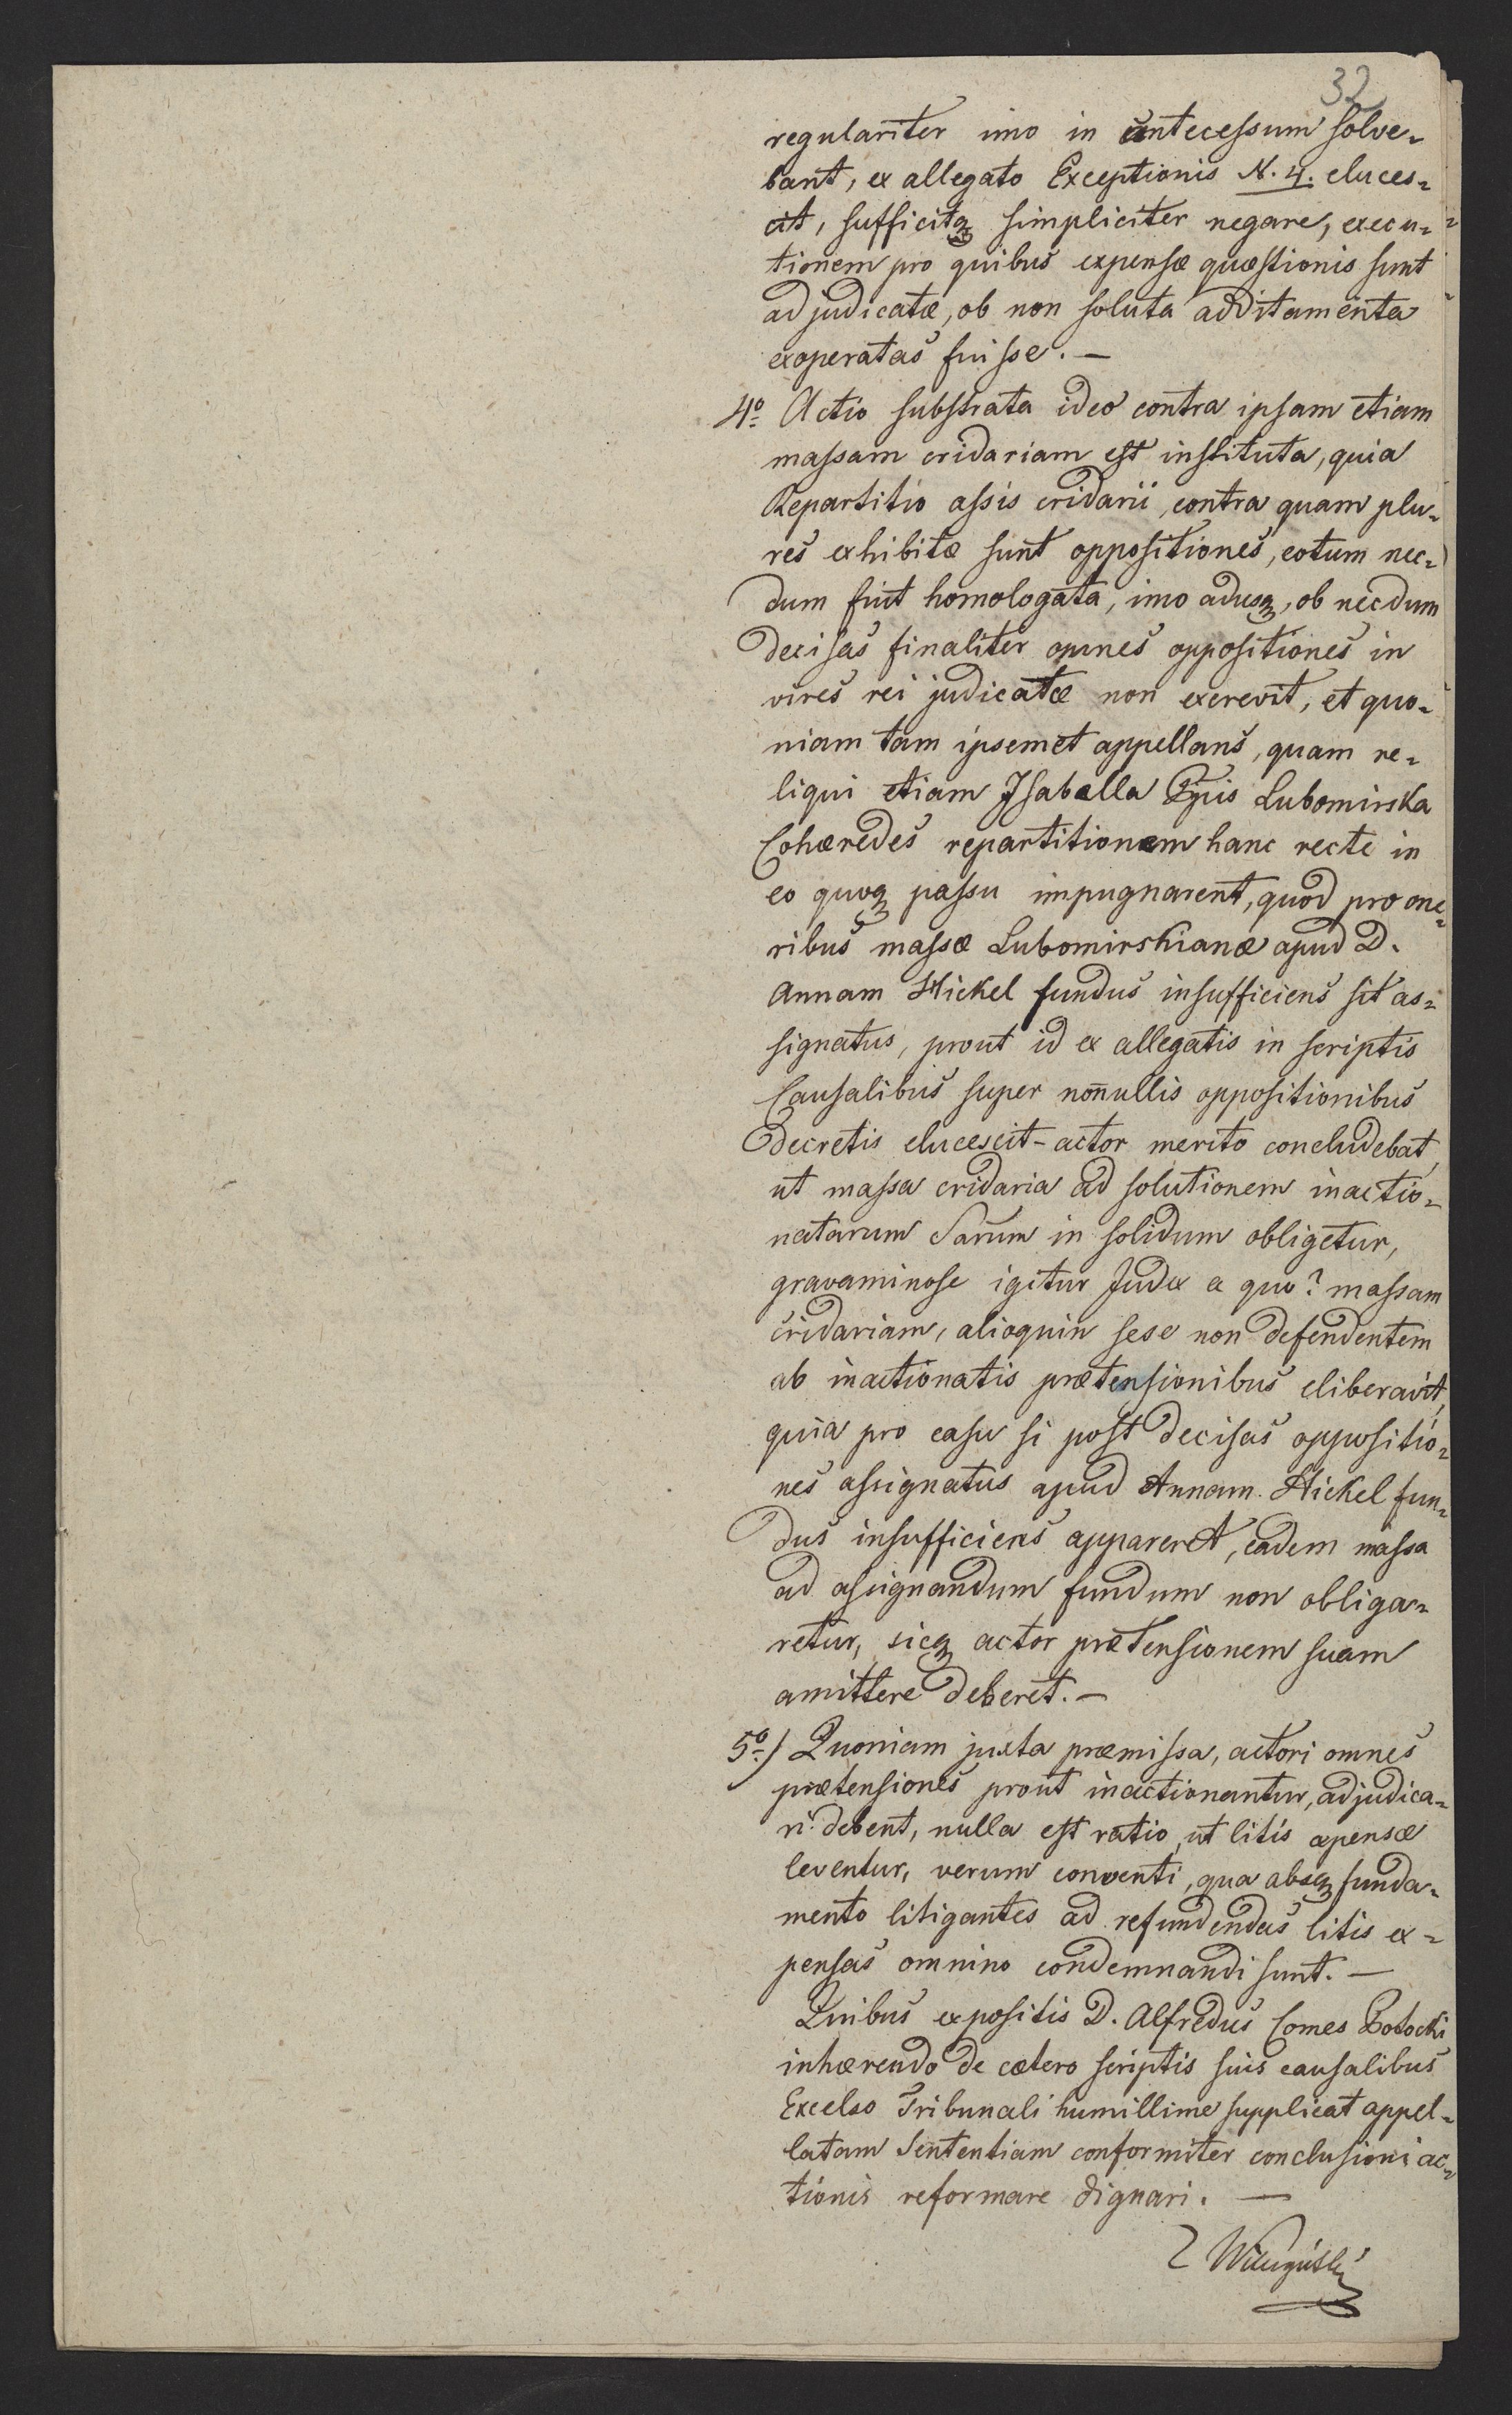 32
regulariter imo in antecessum solve-
bant, ex allegato Exceptionis N. 4. eluces-
cit, sufficitq simpliciter negare, execu-
tionem pro quibus expensæ quæstionis sunt
adjudicatæ, ob non soluta additamenta
exoperatas fuisse. —
4o Actio substrata ideo contra ipsam etiam
massam cridariam est instituta, quia
Repartitio assis cridarii, contra quam plu-
res exhibitæ sunt oppositiones, eotum nec-
dum fuit homologata, imo adusq, ob necdum
decisas finaliter omnes oppositiones in
vires rei judicatæ non excrevit, et quo-
niam tam ipsemet appellans, quam re-
liqui etiam Isabella Lubomirska
Cohæredes repartitionem hanc recte in
eo quoq passu impugnarent, quod pro one-
ribus massæ Lubomirskianæ apud D.
Annam Hickel fundus insufficiens sit as-
signatus, prout id ex allegatis in scriptis
Causalibus super nonnullis oppositionibus
decretis elucescit - actor merito concludebat,
ut massa cridaria ad solutionem inactio-
natarum Sarum in solidum obligetur,
gravaminose igitur Judex a quo? massam
cridariam, alioquin sese non defendentem
ab inactionatis prætensionibus eliberavit,
quia pro casu si post decisas oppositio-
nes assignatus apud Annam Hickel fun-
dus insufficiens appareret, eadem massa
ad assignandum fundum non obliga-
retur, sicq actor prætensionem suam
amittere deberet. —
5o/ Quoniam juxta præmissa, actori omnes
prætensiones prout inactionantur, adjudica-
ri debent, nulla est ratio, ut litis expensæ
leventur, verum conventi, qua absq funda-
mento litigantes ad refundendas litis ex-
pensas omnino condemnandi sunt. —
Quibus expositis D. Alfredus Comes Potocki
inhærendo de cætero scriptis suis causalibus
Excelso Tribunali humillime supplicat appel-
latam Sententiam conformiter conclusioni ac-
tionis reformare dignari. —